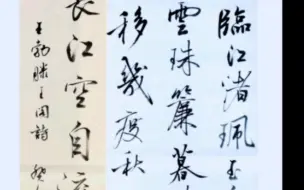 臨江渚珮玉
雲珠簾暮
移幾度秋
長江空自流
王勃滕王閣詩